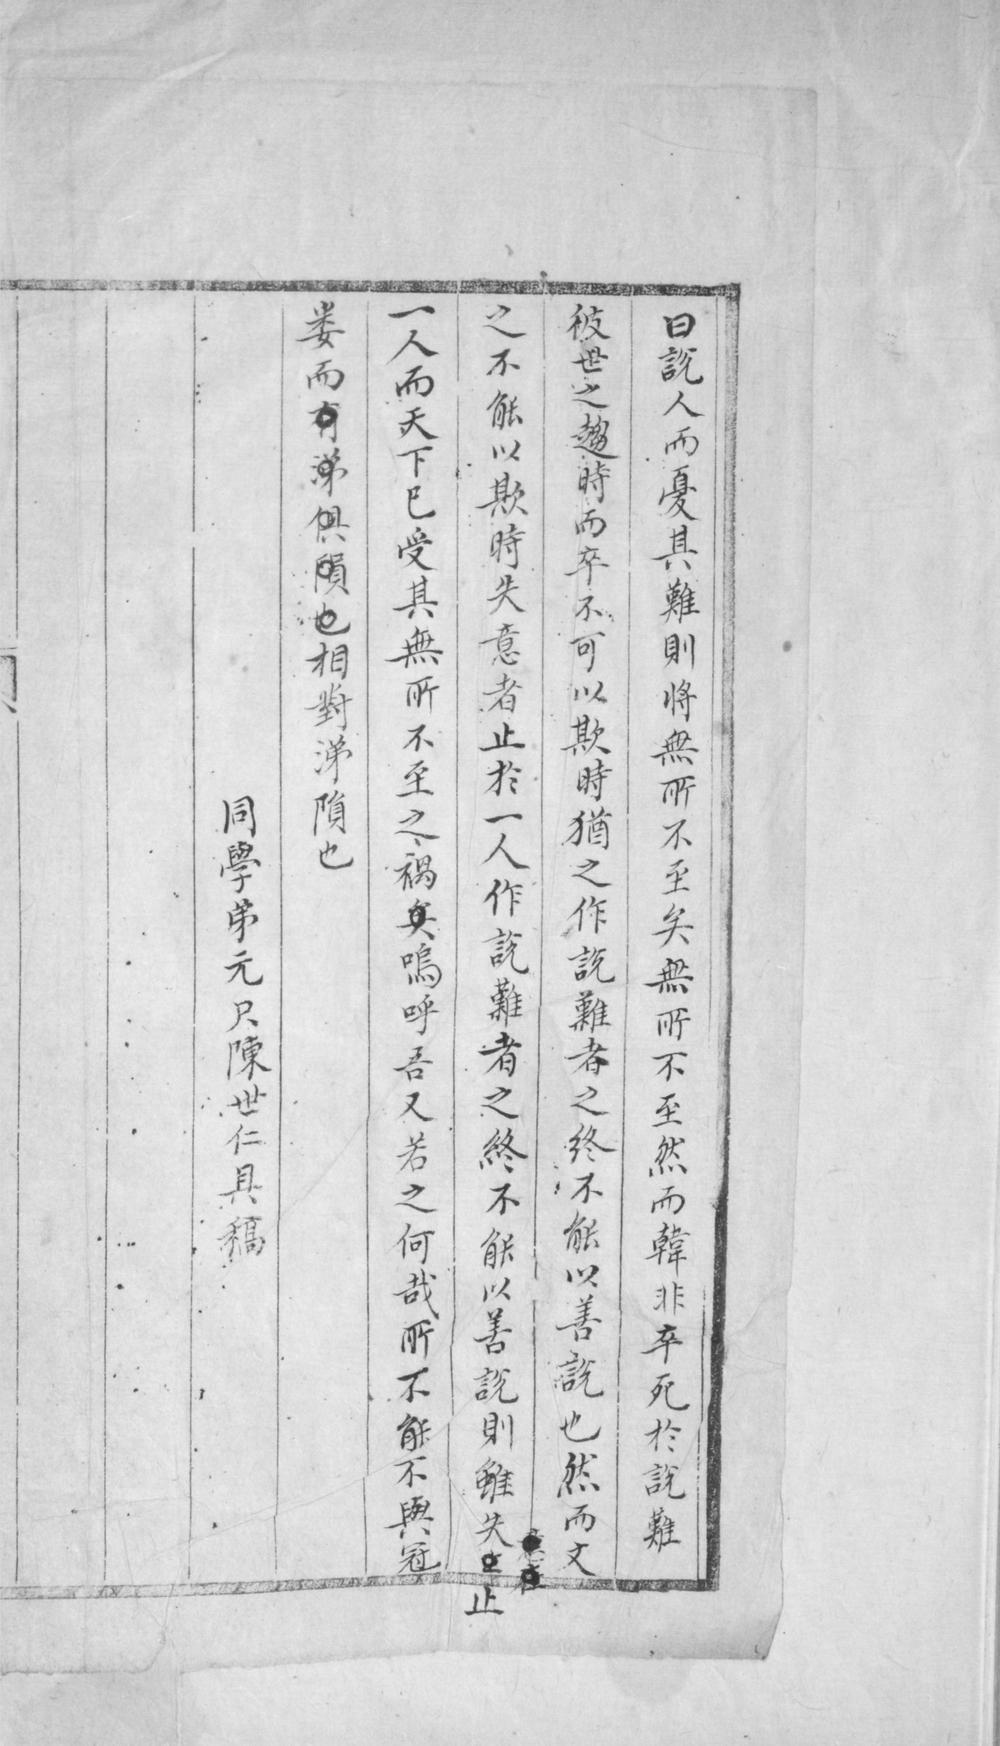 曰說人而憂其難則將無所不至矣無所不至然而韓非卒死於說難
彼世之趨時而卒不可以欺時猶之作說難者之終不能以善說也然而文
之不能以欺時失意者止於一人作說難者之終不能以善說則雖失止
一人而天下已受其無所不至之禍矣嗚呼吾又若之何哉所不能不與冠
婁而有涕俱隕也相對涕隕也
同學弟元尺陳世仁具稿